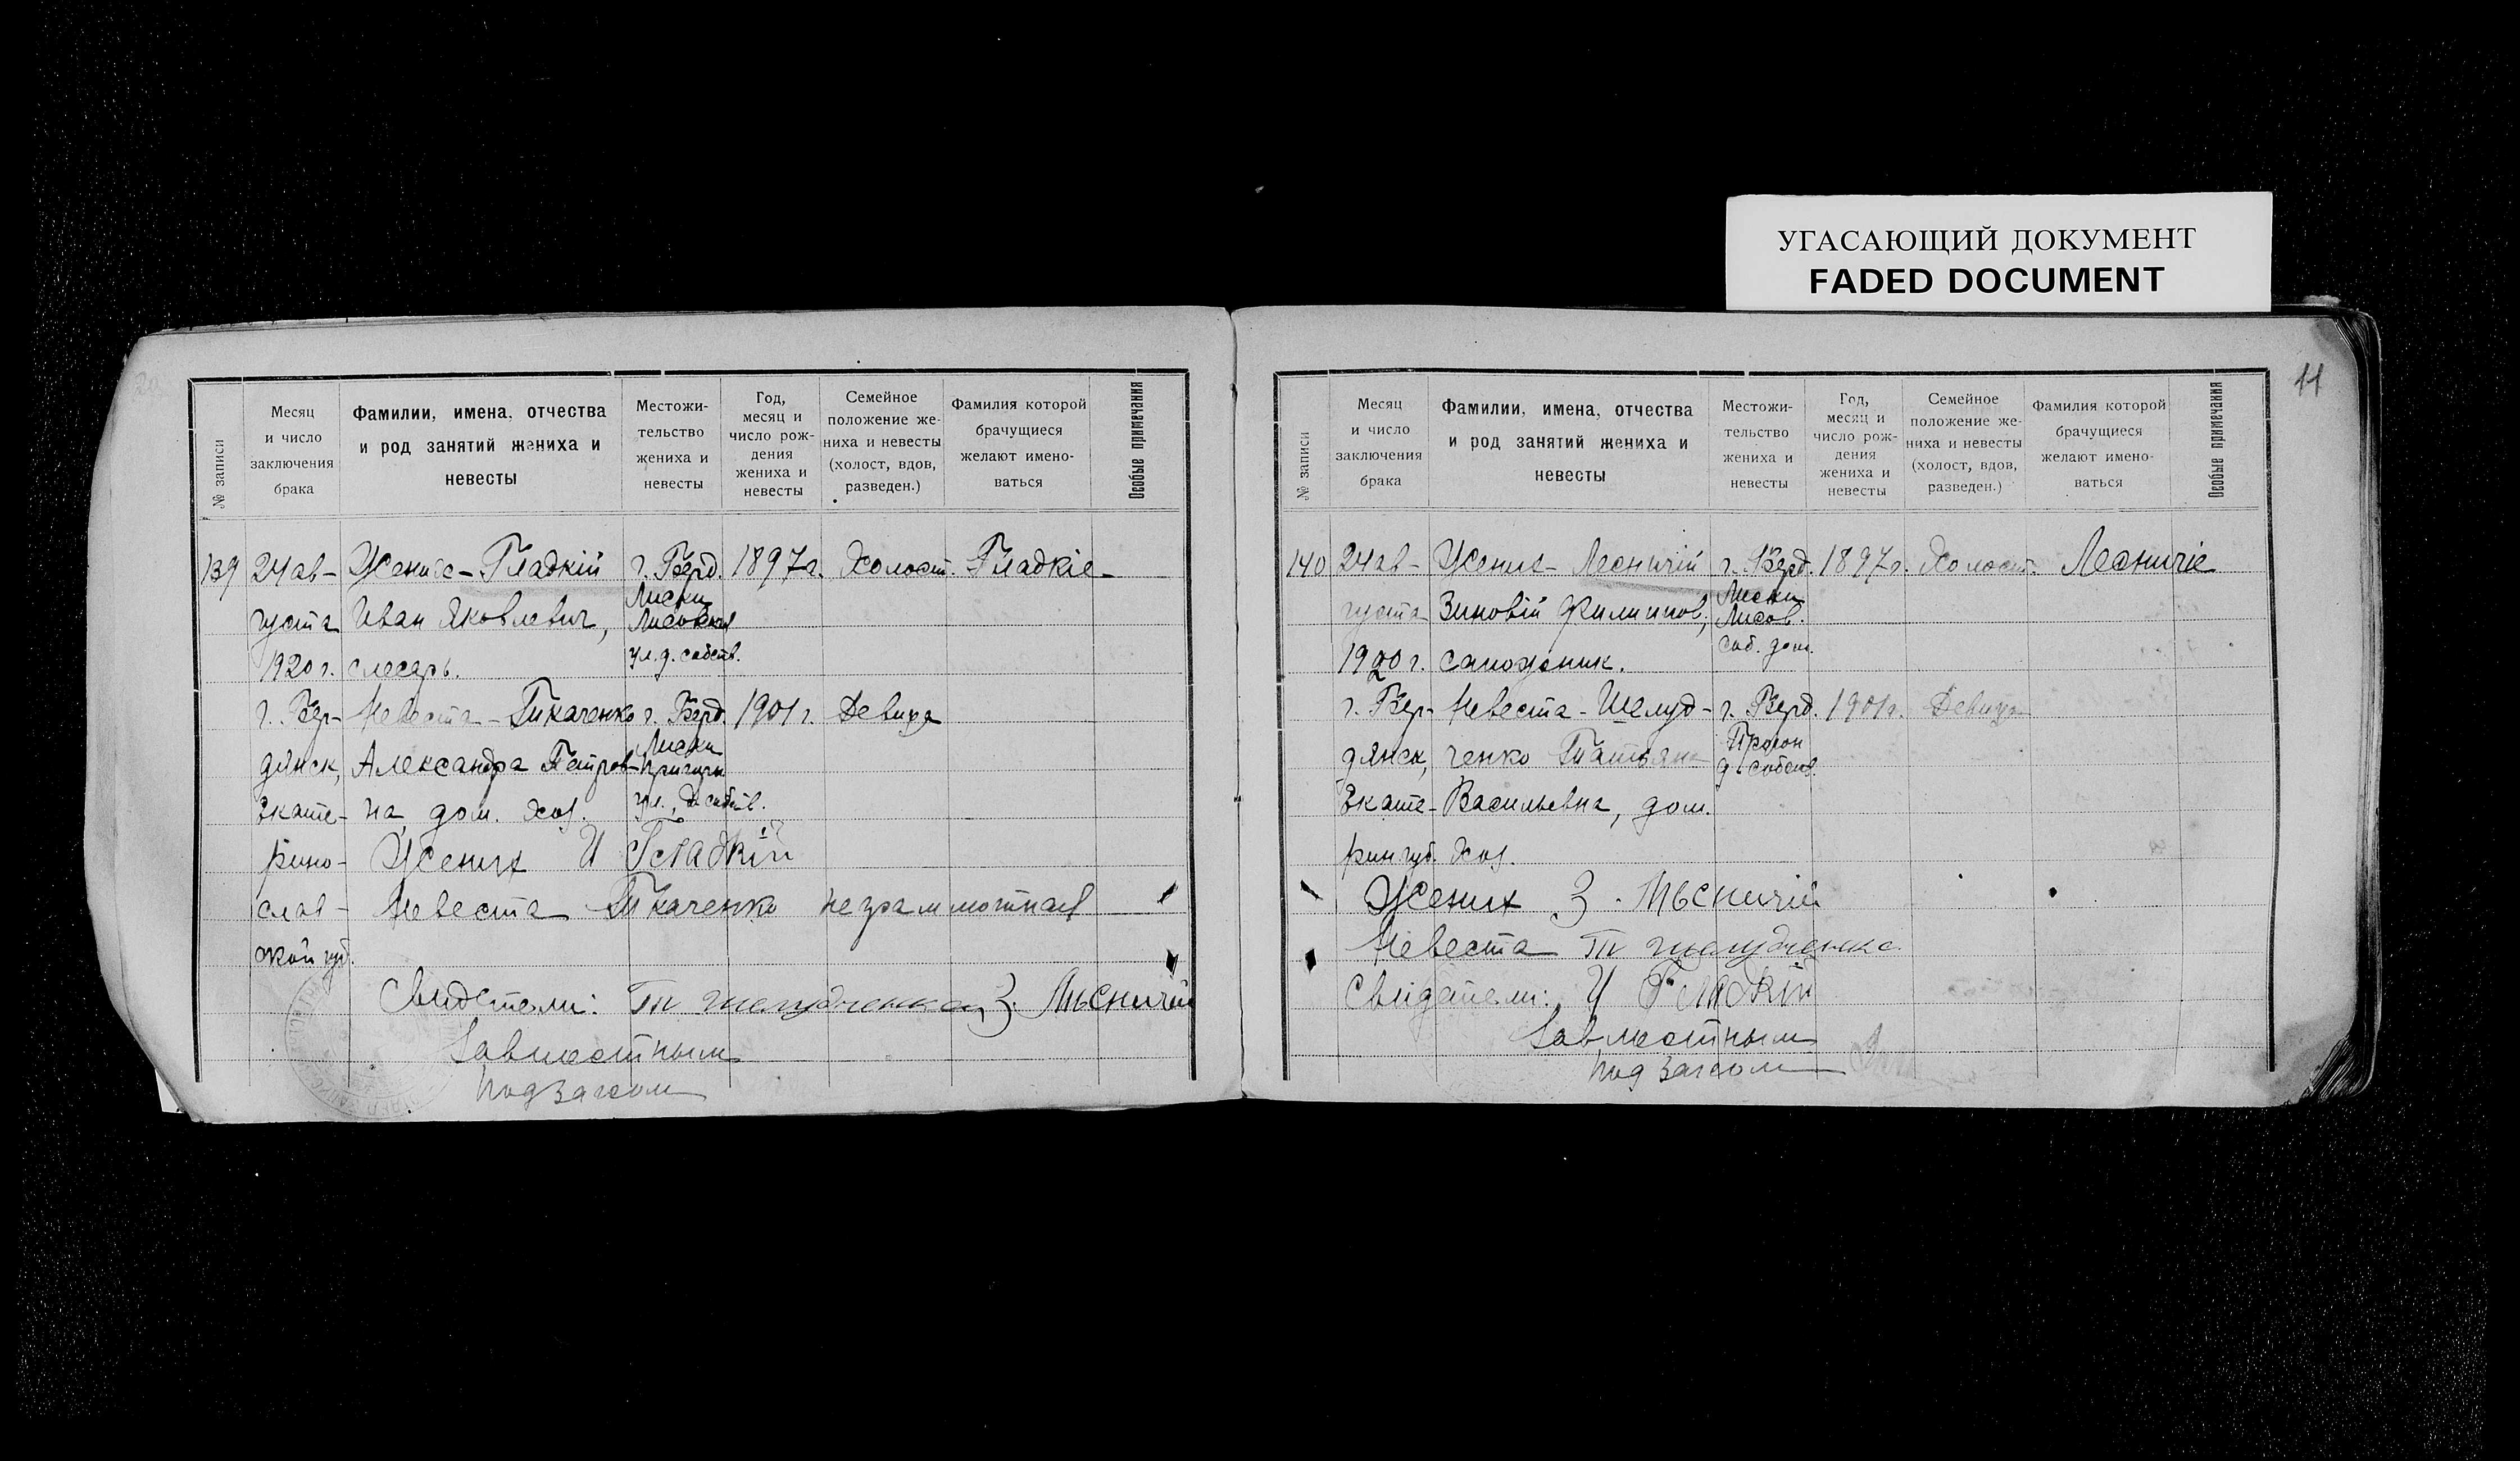 УГАСАЮЩИЙ ДОКУМЕНТ
FADED DOCUMENT
№ записи
Месяц
и число
заключения
брака
Фамилии, имена, отчества
и род занятий жениха и
невесты
Местожи-
тельство
жениха и
невесты
Год,
месяц и
число рож-
дения
жениха и
невесты
Семейное
положение же-
ниха и невесты
(холост, вдов,
разведен.)
Фамилия которой
брачущиеся
желают имено-
ваться
Особые примечания
139
24 ав-
густа
1920 г.
г. Бер-
дянск,
Екате-
рино-
слав-
ской губ.
Жених - Гладкій
Иван Яковлевич,
слесарь.
Невеста - Ткаченко
Александра Петров-
на, дом. хоз.
г. Берд.
Лиски
Лисовская
ул. д. собств.
г. Берд.
Лиски
ул., д. собств.
1897 г.
1901 г.
Холост.
Девица
Гладкіе
Жених И Гладкій
Невеста Ткаченко неграммотная
Свидетели: Т. Шелудченко З. Лѣсничій
Завместным
подзагсом
11
№ записи
Месяц
и число
заключения
брака
Фамилии, имена, отчества
и род занятий жениха и
невесты
Местожи-
тельство
жениха и
невесты
Год,
месяц и
число рож-
дения
жениха и
невесты
Семейное
положение же-
ниха и невесты
(холост, вдов,
разведен.)
Фамилия которой
брачущиеся
желают имено-
ваться
Особые примечания
140
24 ав-
густа
1920 г.
г. Бер-
дянск,
Екате-
рин губ.
Жених - Лесничій
Зиновій Филиппов,
сапожник.
Невеста - Шелуд-
ченко Татьяна
Васильевна, дом.
хоз.
г. Берд.
Лиски
Лисов.
соб. дом.
г. Берд.
д. собств.
1897 г.
1901 г.
Холост.
Девица
Лесничіе
Жених З. Лѣсничій
Невеста Т. Шелудченко
Свидетели: И Гладкій
Завместным
под загсом